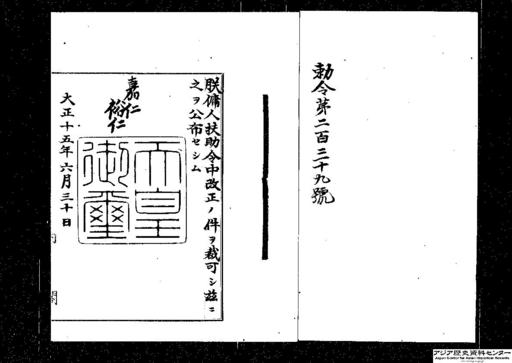 勅令第二百三十九號
朕傭人扶助令中改正ノ件ヲ裁可シ茲ニ
之ヲ公布セシム
嘉仁
裕仁
天皇御璽
大正十五年六月三十日
内閣
アジア歴史資料センター
Japan Center for Asian Historical Records